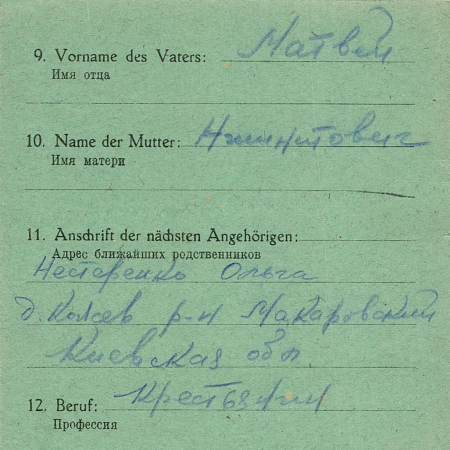 9. Vorname des Vaters: Матвей
Имя отца
10. Name der Mutter:
Имя матери
11. Anschrift der nächsten Angehörigen:
Адрес ближайших родственников
Нестеренко Ольга
р-н Макаровский
Киевская обл.
12. Beruf: Крестьянин
Профессия